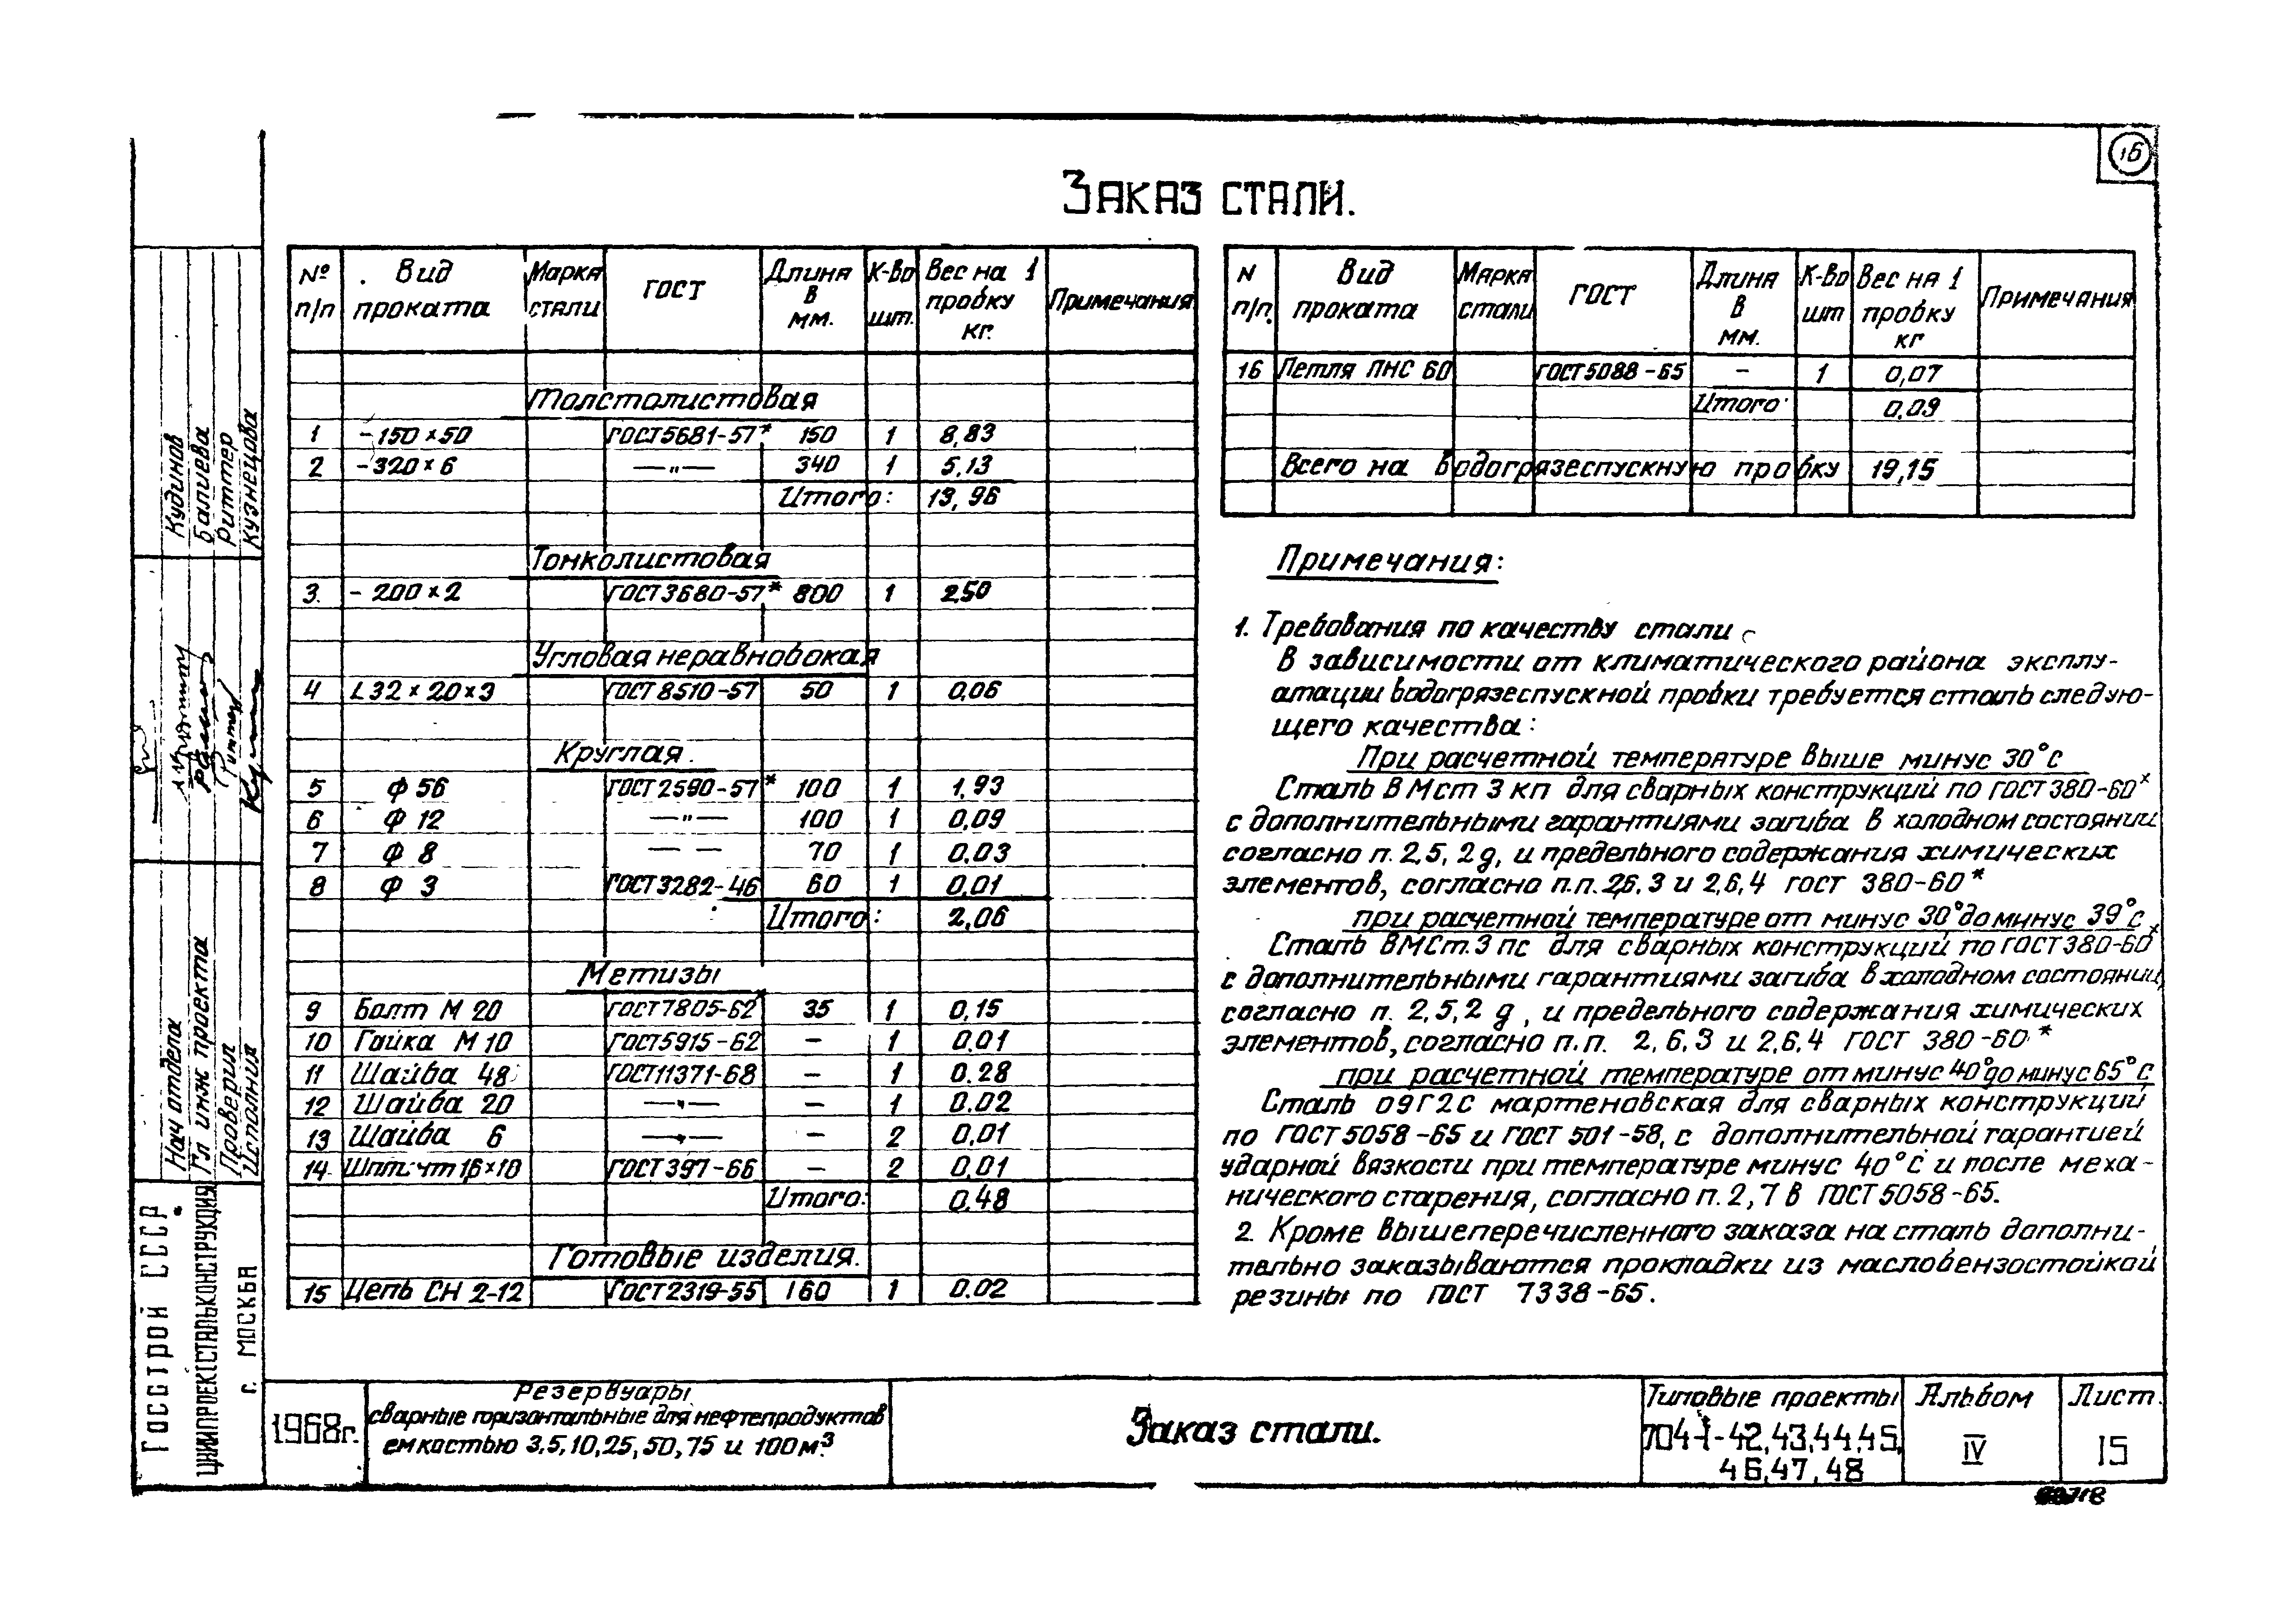 16
Заказ стали.
№ п/п Вид проката Марка стали ГОСТ Длина в мм. К-во шт. Вес на 1 пробку кг. Примечания
Толстолистовая
1 -150×50 ГОСТ5681-57* 150 1 8,83
2 -320×6 —"— 340 1 5,13
Итого: 13,96
Тонколистовая
3. -200×2 ГОСТ3680-57* 800 1 2,50
Угловая неравнобокая
4 L32×20×3 ГОСТ8510-57 50 1 0,06
Круглая.
5 Ф56 ГОСТ2590-57* 100 1 1,93
6 Ф12 —"— 100 1 0,09
7 Ф8 — — 70 1 0,03
8 Ф3 ГОСТ3282-46 60 1 0,01
Итого: 2,06
Метизы
9 Болт М20 ГОСТ7805-62* 35 1 0,15
10 Гайка М10 ГОСТ5915-62 – 1 0,01
11 Шайба 48 ГОСТ11371-68 – 1 0.28
12 Шайба 20 —"— – 1 0.02
13 Шайба 6 —"— – 2 0,01
14 Шплинт 16×10 ГОСТ397-66 – 2 0,01
Итого: 0,48
Готовые изделия.
15 Цепь СН 2-12 ГОСТ2319-55 160 1 0.02
N п/п. Вид проката Марка стали ГОСТ Длина в мм. К-во шт Вес на 1 пробку кг Примечания
16 Петля ПНС 60 ГОСТ5088-65 – 1 0,07
Итого: 0,09
Всего на водогрязеспускную пробку 19,15
Примечания:
1. Требования по качеству стали
В зависимости от климатического района эксплу-
атации водогрязеспускной пробки требуется сталь следую-
щего качества:
При расчетной температуре выше минус 30°с
Сталь ВМст3кп для сварных конструкций по ГОСТ380-60*
с дополнительными гарантиями загиба в холодном состоянии
согласно п. 2,5, 2д, и предельного содержания химических
элементов, согласно п.п. 2,6,3 и 2,6,4 гост 380-60*
при расчетной температуре от минус 30° до минус 39°с
Сталь ВМСт.3пс для сварных конструкций по ГОСТ380-60*
с дополнительными гарантиями загиба в холодном состоянии,
согласно п. 2,5,2д, и предельного содержания химических
элементов, согласно п.п. 2,6,3 и 2,6,4 ГОСТ 380-60*
при расчетной температуре от минус 40° до минус 65°с
Сталь 09Г2С мартеновская для сварных конструкций
по ГОСТ5058-65 и ГОСТ 501-58, с дополнительной гарантией
ударной вязкости при температуре минус 40°с и после меха-
нического старения, согласно п. 2,7в ГОСТ5058-65.
2. Кроме вышеперечисленного заказа на сталь дополни-
тельно заказываются прокладки из маслобензостойкой
резины по ГОСТ 7338-65.
Кудинов
Балиева
Риттер
Кузнецова
Нач отдела
Гл инж проекта
Проверил
Исполнил
Госстрой СССР
ЦНИИПРОЕКТСТАЛЬКОНСТРУКЦИЯ
г. МОСКВА
1968г.
Резервуары
сварные горизонтальные для нефтепродуктов
емкостью 3,5,10,25,50,75 и 100м³
Заказ стали.
Типовые проекты
704-1-42,43,44,45,
46,47,48
Альбом
IV
Лист.
15